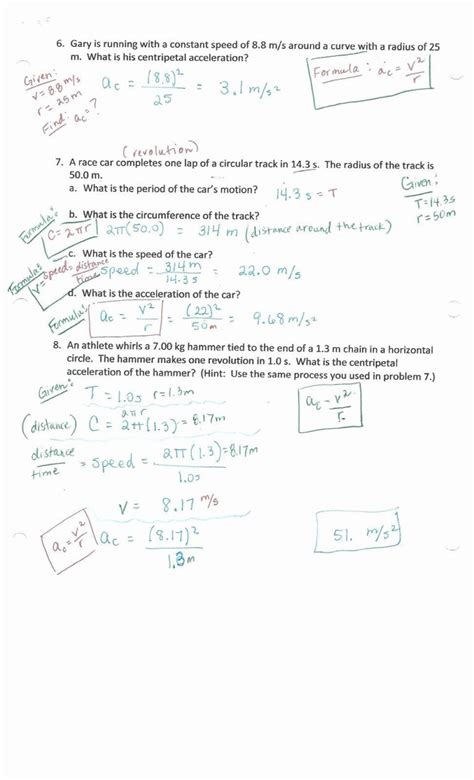 6. Gary is running with a constant speed of 8.8 m/s around a curve with a radius of 25
m. What is his centripetal acceleration?
Given:
v = 8.8 m/s
r = 25m
Find: ac = ?
ac = (8.8)² / 25 = 3.1 m/s²
Formula: ac = v² / r
(revolution)
7. A race car completes one lap of a circular track in 14.3 s. The radius of the track is
50.0 m.
a. What is the period of the car's motion? 14.3 s = T
Given:
T = 14.3s
r = 50m
b. What is the circumference of the track?
Formula: C = 2πr 2π(50.0) = 314 m (distance around the track)
c. What is the speed of the car?
Formula: V = speed = distance / time
speed = 314 m / 14.3 s = 22.0 m/s
d. What is the acceleration of the car?
Formula: ac = v² / r = (22)² / 50m = 9.68 m/s²
8. An athlete whirls a 7.00 kg hammer tied to the end of a 1.3 m chain in a horizontal
circle. The hammer makes one revolution in 1.0 s. What is the centripetal
acceleration of the hammer? (Hint: Use the same process you used in problem 7.)
Given: T = 1.0s r = 1.3m
ac = v² / r
2πr
(distance) C = 2π(1.3) = 8.17m
distance / time = speed = 2π(1.3) = 8.17m / 1.0s
V = 8.17 m/s
ac = v² / r ac = (8.17)² / 1.3m
51. m/s²